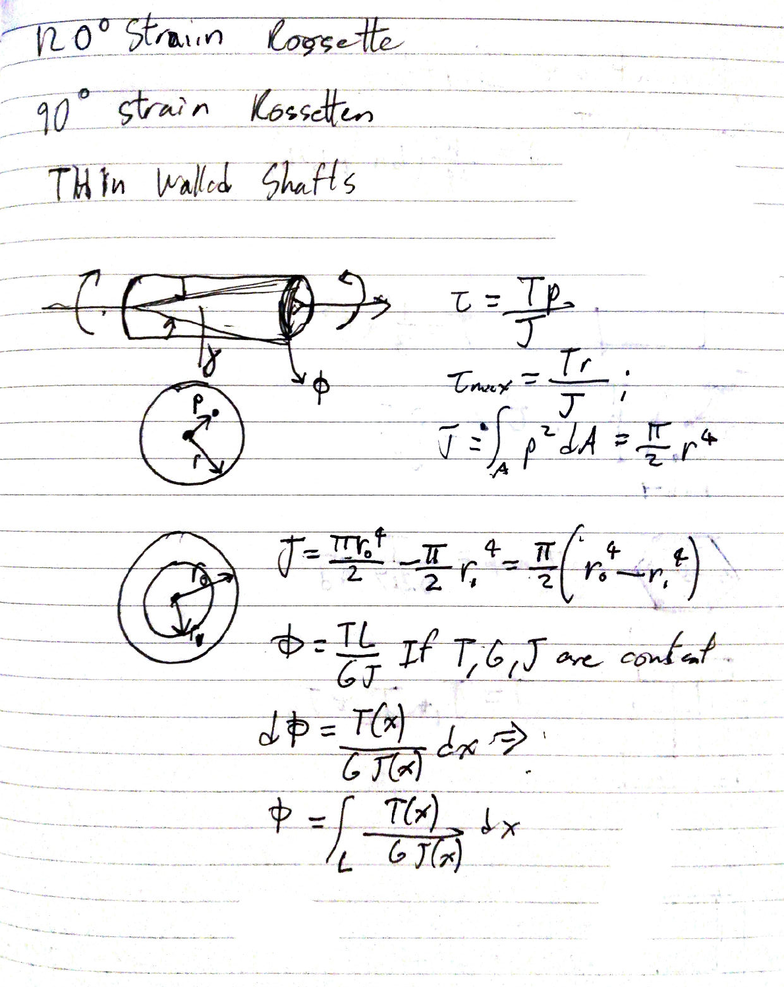 120° Straiin Rossette
90° strain Rossetten
THIn Walled Shafts
τ = Tρ/J
γ
ϕ
τmax = Tr/J ;
ρ
r
J = ∫_A ρ² dA = π/2 r⁴
J = πr₀⁴/2 − π/2 r₁⁴ = π/2 (r₀⁴ − r₁⁴)
r₀
r₁
ϕ = TL/GJ If T, G, J are constant
dϕ = T(x)/GJ(x) dx ⇒
ϕ = ∫_L T(x)/GJ(x) dx